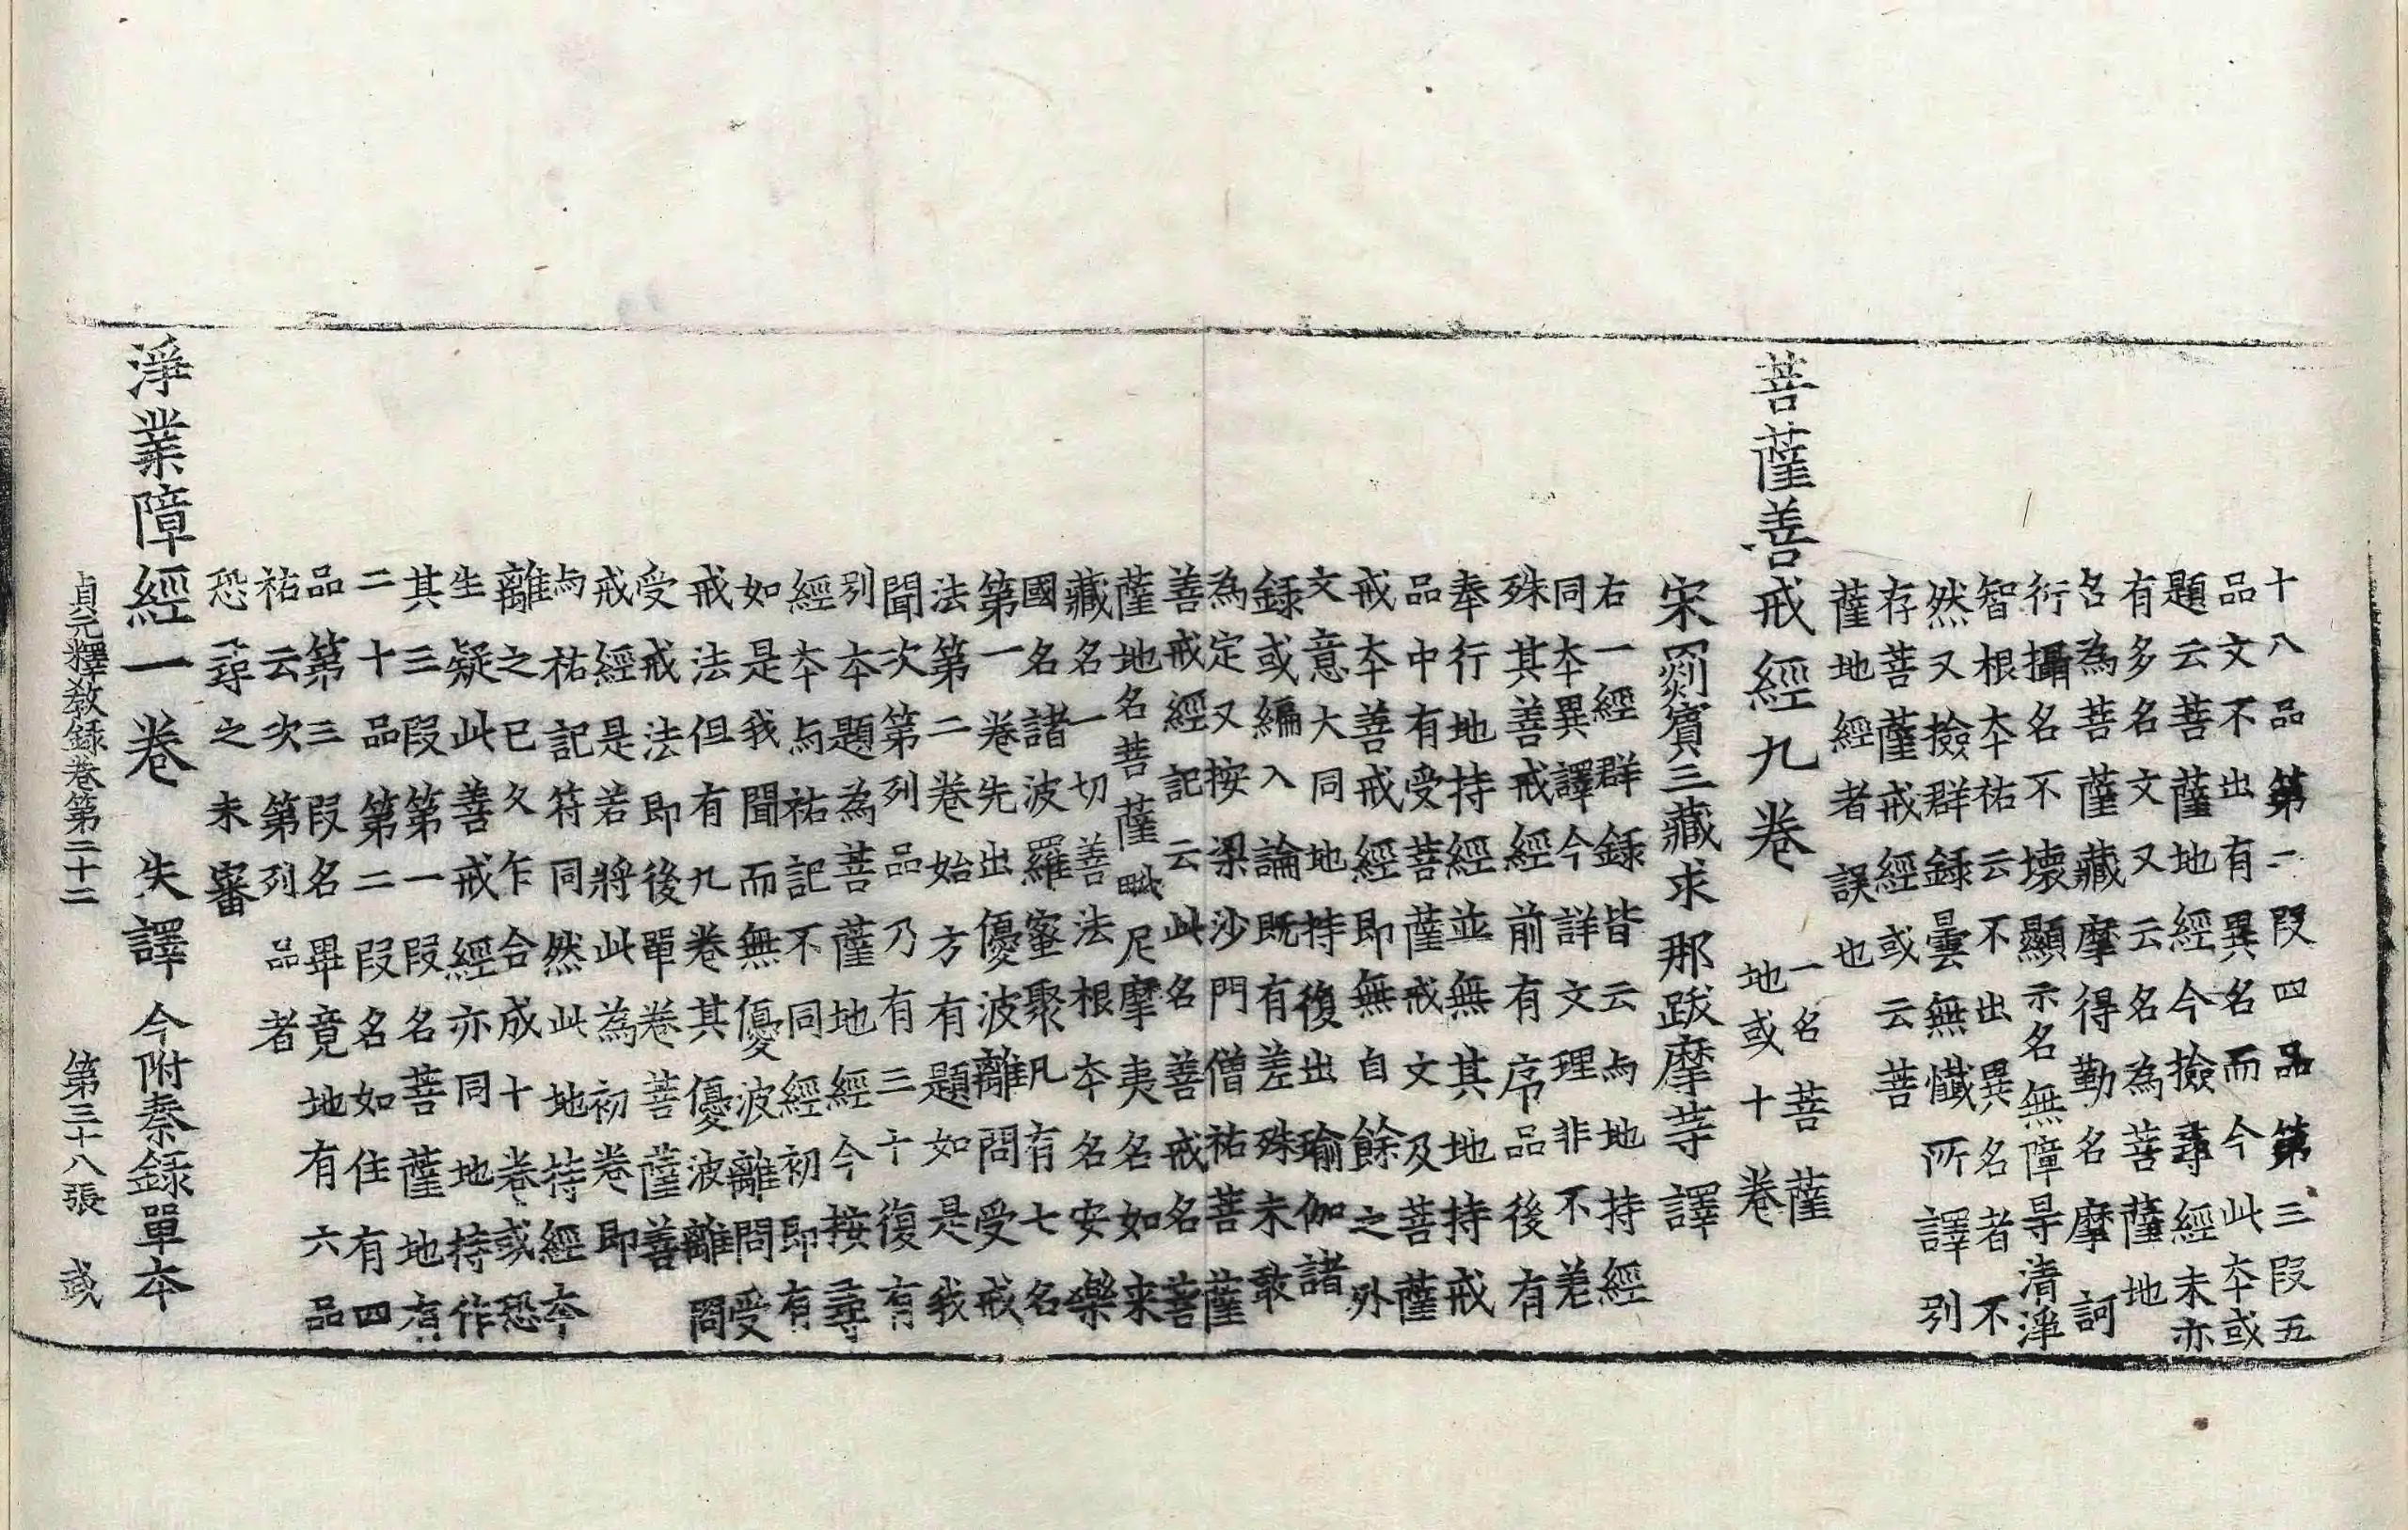 十八品第二段四品第三段五
品文不出有異名而今此本或
題云菩薩地經今撿尋經未亦
有多名文又云名為菩薩地
名為菩薩藏摩得勤名摩訶
衍攝名不壞顯示名無障㝵清淨
智根本祐云不出異名者不
然又撿群錄曇無懺所譯別
存菩薩戒經或云菩
薩地經者誤也
菩薩善戒經九卷 一名菩薩地或十卷
宋罽賓三藏求那跋摩等譯
右一經群錄皆云与地持經
同本異譯今詳文理非不有差
殊其善戒經前有序品後有
奉行地持經並無其地持戒
品中有受菩薩戒文及菩薩
戒本善戒經即無自餘之外
文意大同地持復出瑜伽諸
錄或編入論既有差殊未敢
為定又按梁沙門僧祐菩薩
善戒經記云此名善戒名菩
薩地名菩薩毗尼摩夷名如来
藏名一切善法根本名安樂
國名諸波羅蜜聚凡有七名
第一卷先出優波離問受戒
法第二卷始方有題如是我
聞次第列品乃有三十復有
別本題為菩薩地經今按尋
經本与祐記不同經初即有
如是我聞而無優波離問受
戒法但有九卷其優波離問
受戒法即後單卷菩薩善
戒經是若將此為初卷即
与祐記符同然此地持經本
離之已久乍合成十卷或恐
生疑此善戒經亦同地持作
其三段第一段名菩薩地有
二十品第二段名如住有四
品第三段名畢竟地有六品
祐云次第列品者
恐尋之未審
淨業障經一卷 失譯今附秦錄單本
貞元釋教錄卷第二十二 第三十八張 或